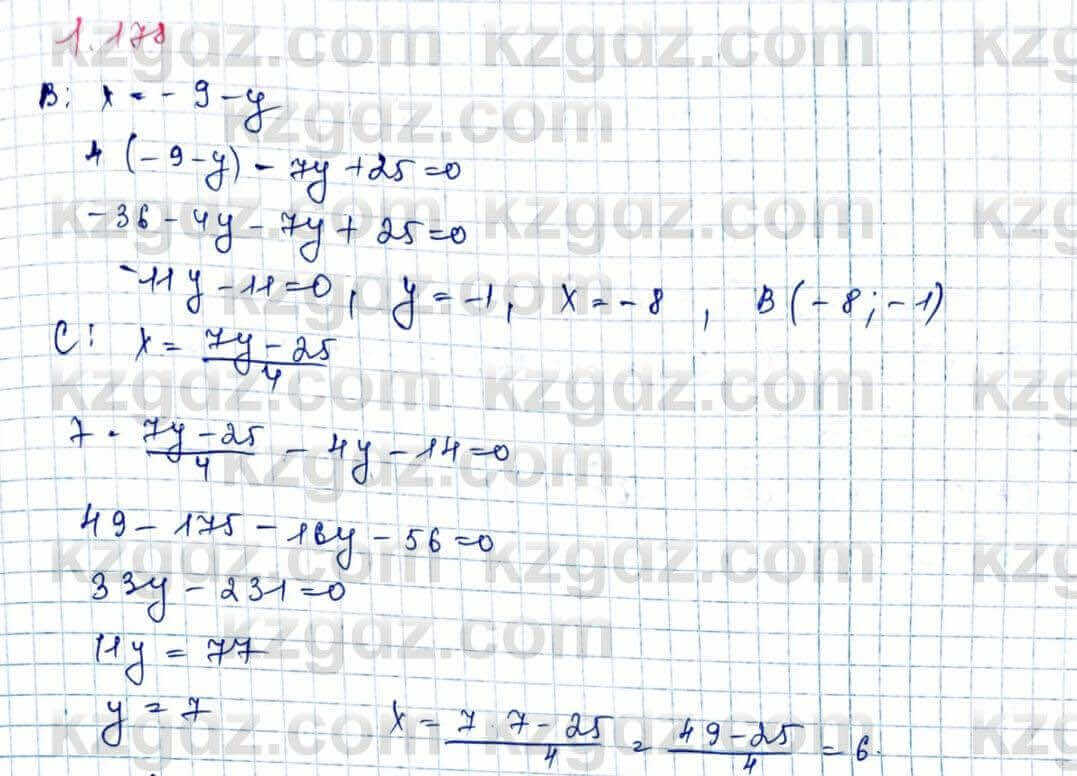 1.178
B: x = -9 - y
4 (-9 - y) - 7y + 25 = 0
-36 - 4y - 7y + 25 = 0
-11y - 11 = 0, y = -1, x = -8, B (-8; -1)
C: x = (7y - 25)/4
7 · (7y - 25)/4 - 4y - 14 = 0
49 - 175 - 16y - 56 = 0
33y - 231 = 0
11y = 77
y = 7 x = (7 · 7 - 25)/4 = (49 - 25)/4 = 6.
kzgdz.com
kzgdz.com
kzgdz.com
kzgdz.com
kzgdz.com
kzgdz.com
kzgdz.com
kzgdz.com
kzgdz.com
kzgdz.com
kzgdz.com
kzgdz.com